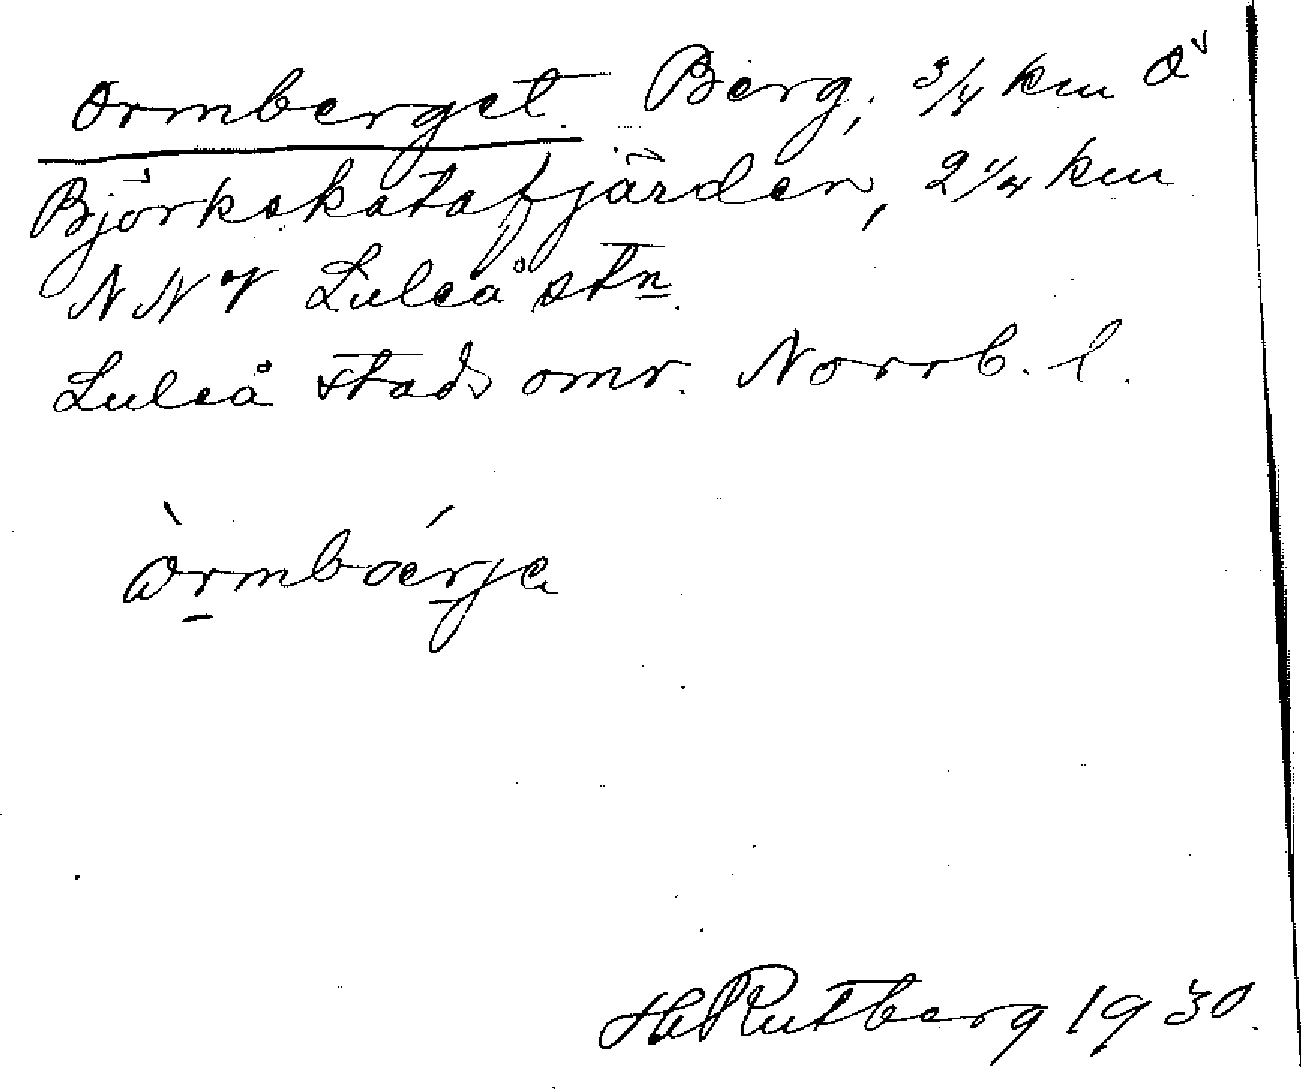 Ormberget. Berg, 3/4 km Ö
Björkskatafjärden, 2 1/4 km
NNV Luleå stn.
Luleå stads omr. Norrb. l.
òrmbœ́rjɐ
Rutberg 1930.